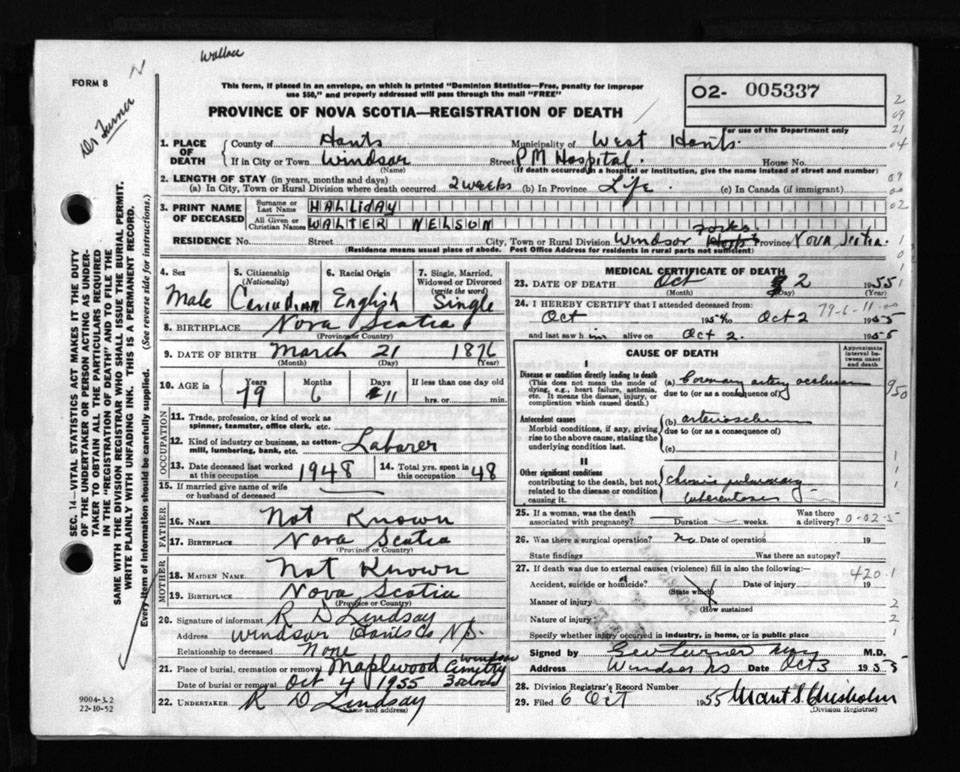 Wallace
N
Dr Turner
FORM 8
This form, if placed in an envelope, on which is printed "Dominion Statistics—Free, penalty for improper
use $50," and properly addressed will pass through the mail "FREE"
PROVINCE OF NOVA SCOTIA—REGISTRATION OF DEATH
O2- 005337
For use of the Department only
1. PLACE OF DEATH
County of Hants Municipality of West Hants.
If in City or Town Windsor Street P M Hospital. House No.
(Name) (If death occurred in a hospital or institution, give the name instead of street and number)
2. LENGTH OF STAY (in years, months and days)
(a) In City, Town or Rural Division where death occurred 2 weeks (b) In Province Life (c) In Canada (if immigrant)
3. PRINT NAME OF DECEASED
Surname or Last Name HALLIDAY
All Given or Christian Names WALTER NELSON
RESIDENCE No. Street City, Town or Rural Division Windsor Forks Province Nova Scotia.
(Residence means usual place of abode. Post Office Address for residents in rural parts not sufficient)
4. Sex Male
5. Citizenship (Nationality) Canadian
6. Racial Origin English
7. Single, Married, Widowed or Divorced (write the word) Single
8. BIRTHPLACE Nova Scotia
(Province or Country)
9. DATE OF BIRTH March 21 1876
(Month) (Day) (Year)
10. AGE in Years 79 Months 6 Days 11 If less than one day old hrs. or min.
OCCUPATION
11. Trade, profession, or kind of work as
spinner, teamster, office clerk, etc.
12. Kind of industry or business, as cotton-
mill, lumbering, bank, etc. Laborer
13. Date deceased last worked at this occupation 1948
14. Total yrs. spent in this occupation 48
15. If married give name of wife or husband of deceased
FATHER
16. NAME Not Known
17. BIRTHPLACE Nova Scotia
(Province or Country)
MOTHER
18. MAIDEN NAME Not Known
19. BIRTHPLACE Nova Scotia
(Province or Country)
20. Signature of informant R D Lindsay
Address Windsor Hants Co N.S.
Relationship to deceased None
21. Place of burial, cremation or removal Maplwood Cemetry Windsor
Date of burial or removal Oct 4 1955 3 oclock
22. UNDERTAKER R D Lindsay
(Name and address)
MEDICAL CERTIFICATE OF DEATH
23. DATE OF DEATH Oct 2 1955
(Month) (Day) (Year)
24. I HEREBY CERTIFY that I attended deceased from
79-6-11
Oct 1954 to Oct 2 1955
and last saw him alive on Oct 2. 1955
CAUSE OF DEATH
Approximate interval between onset and death
I
Disease or condition directly leading to death
(This does not mean the mode of dying, e.g., heart failure, asthenia, etc. It means the disease, injury, or complication which caused death.)
(a) Coronary artery occlusion
due to (or as a consequence of)
Antecedent causes
Morbid conditions, if any, giving rise to the above cause, stating the underlying condition last.
(b) arteriosclerosis
due to (or as a consequence of)
(c)
II
Other significant conditions
contributing to the death, but not related to the disease or condition causing it.
chronic pulmonary
tuberculosis
25. If a woman, was the death associated with pregnancy? Duration weeks. Was there a delivery?
0-02-5
26. Was there a surgical operation? no Date of operation 19
State findings Was there an autopsy?
27. If death was due to external causes (violence) fill in also the following:—
420.1
Accident, suicide or homicide? (State which) Date of injury 19
Manner of injury (How sustained)
Nature of injury
Specify whether injury occurred in industry, in home, or in public place
Signed by Geo Turner M.D.
Address Windsor NS Date Oct 3 1955
28. Division Registrar's Record Number
29. Filed 6 Oct 1955
(Division Registrar)
SEC. 14—VITAL STATISTICS ACT MAKES IT THE DUTY
OF THE UNDERTAKER OR PERSON ACTING AS UNDER-
TAKER TO OBTAIN ALL THE PARTICULARS REQUIRED
IN THE "REGISTRATION OF DEATH" AND TO FILE THE
SAME WITH THE DIVISION REGISTRAR WHO SHALL ISSUE THE BURIAL PERMIT.
WRITE PLAINLY WITH UNFADING INK. THIS IS A PERMANENT RECORD.
Every item of information should be carefully supplied. (See reverse side for instructions.)
9004-3.2
22-10-52